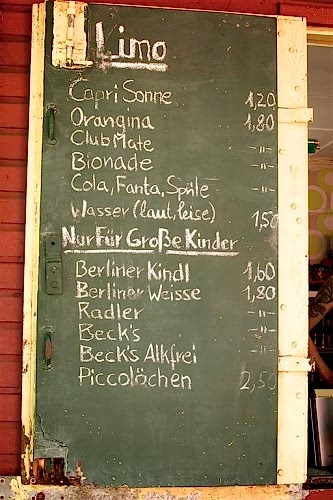 Limo
Capri Sonne 1,20
Orangina 1,80
Club Mate -"-
Bionade -"-
Cola, Fanta, Sprite -"-
Wasser (laut, leise) 1,50
Nur Für Große Kinder
Berliner Kindl 1,60
Berliner Weisse 1,80
Radler -"-
Beck's -"-
Beck's Alkfrei -"-
Piccolöchen 2,50